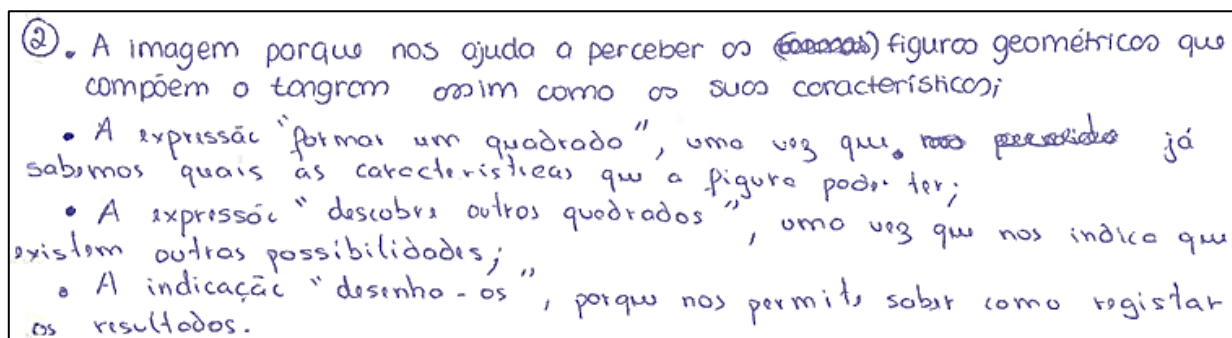 ②. A imagem porque nos ajuda a perceber as figuras geométricas que
compõem o tangram assim como as suas características;
• A expressão "formar um quadrado", uma vez que já
sabemos quais as características que a figura pode ter;
• A expressão "descobre outros quadrados", uma vez que nos indica que
existem outras possibilidades;
• A indicação "desenha-os", porque nos permite saber como registar
os resultados.